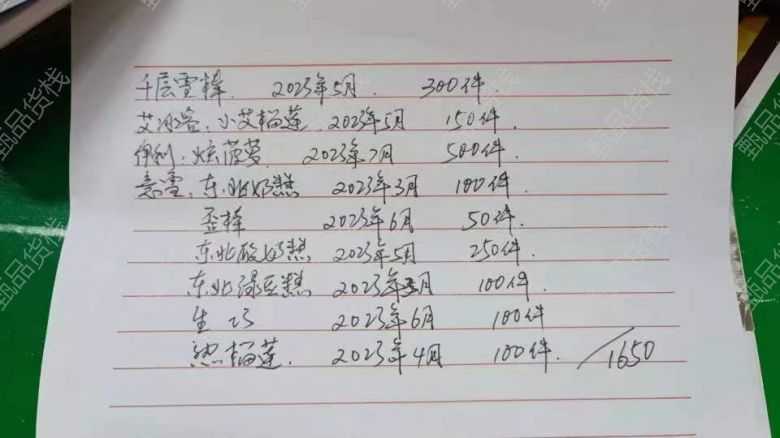 千层雪棒. 2023年5月. 300件.
艾冰客: 小艾榴莲. 2023年5月 150件.
伊利: 炫菠萝 2023年7月 500件.
意雪: 东北奶糕 2023年3月 100件.
歪棒 2023年6月 50件.
东北酸奶糕 2023年5月 250件.
东北绿豆糕 2023年3月 100件
生巧 2023年6月 100件
熟榴莲. 2023年4月 100件. /1650
甄品货栈